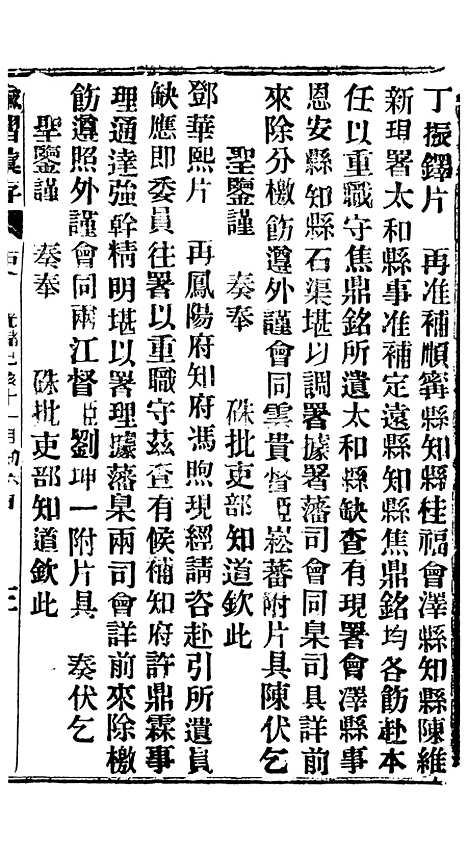 丁振鐸片　再准補順寧縣知縣桂福會澤縣知縣陳維
新現署太和縣事准補定遠縣知縣焦鼎銘均各飭赴本
任以重職守焦鼎銘所遺太和縣缺查有現署會澤縣事
恩安縣知縣石渠堪以調署據署藩司會同臬司具詳前
來除分檄飭遵外謹會同雲貴督臣崧蕃附片具陳伏乞
聖鑒謹　奏奉　硃批吏部知道欽此
鄧華熙片　再鳳陽府知府馮煦現經請咨赴引所遺員
缺應即委員往署以重職守茲查有候補知府許鼎霖事
理通達強幹精明堪以署理據藩臬兩司會詳前來除檄
飭遵照外謹會同兩江督臣劉坤一附片具　奏伏乞
聖鑒謹　奏奉　硃批吏部知道欽此
諭摺彙存　光緒己亥十一月初六日